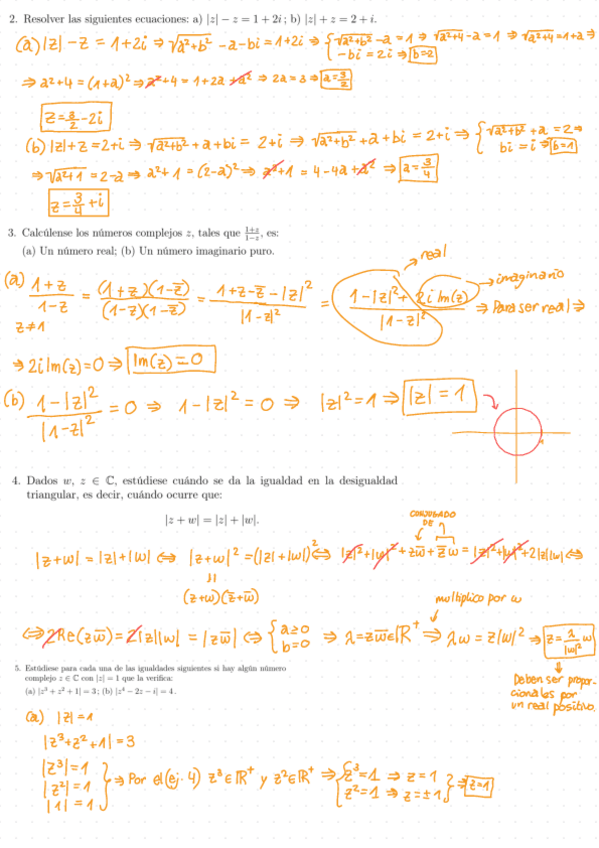 2. Resolver las siguientes ecuaciones: a) |z| − z = 1 + 2i ; b) |z| + z = 2 + i.
(a) |z| − z = 1+2i ⇒ √(a²+b²) − a − bi = 1+2i ⇒ { √(a²+b²) − a = 1 ⇒ √(a²+4) − a = 1 ⇒ √(a²+4) = 1+a ⇒
−bi = 2i ⇒ b=2
⇒ a²+4 = (1+a)² ⇒ a²+4 = 1+2a+a² ⇒ 2a = 3 ⇒ a = 3/2
z = 3/2 − 2i
(b) |z|+z = 2+i ⇒ √(a²+b²) + a + bi = 2+i ⇒ √(a²+b²) + a + bi = 2+i ⇒ { √(a²+b²) + a = 2 ⇒
bi = i ⇒ b=1
⇒ √(a²+1) = 2−a ⇒ a²+1 = (2−a)² ⇒ a²+1 = 4−4a+a² ⇒ a = 3/4
z = 3/4 + i
3. Calcúlense los números complejos z, tales que (1+z)/(1−z), es:
(a) Un número real; (b) Un número imaginario puro.
real
imaginario
(a) (1+z)/(1−z) = (1+z)(1−z̄)/(1−z)(1−z̄) = (1+z−z̄−|z|²)/|1−z|² = (1−|z|²+2i Im(z))/|1−z|² ⇒ Para ser real ⇒
z≠1
⇒ 2i Im(z) = 0 ⇒ Im(z) = 0
(b) (1−|z|²)/|1−z|² = 0 ⇒ 1−|z|² = 0 ⇒ |z|² = 1 ⇒ |z| = 1
4. Dados w, z ∈ ℂ, estúdiese cuándo se da la igualdad en la desigualdad
triangular, es decir, cuándo ocurre que:
|z + w| = |z| + |w|.
CONJUGADO
DE
|z+w| = |z|+|w| ⇔ |z+w|² = (|z|+|w|)² ⇔ |z|²+|w|²+zw̄+z̄w = |z|²+|w|²+2|z||w| ⇔
||
(z+w)(z̄+w̄)
multiplico por w
⇔ 2Re(zw̄) = 2|z||w| = |zw̄| ⇔ { a≥0 ⇒ λ = zw̄ ∈ ℝ⁺ ⇒ λw = z|w|² ⇒ z = λ/|w|² w
b=0
5. Estúdiese para cada una de las igualdades siguientes si hay algún número
complejo z ∈ ℂ con |z| = 1 que la verifica:
(a) |z³ + z² + 1| = 3 ; (b) |z⁴ − 2z − i| = 4 .
Deben ser propor-
cionales por
un real positivo.
(a) |z| = 1
|z³+z²+1| = 3
|z³| = 1
|z²| = 1 } ⇒ Por el (ej. 4) z³∈ℝ⁺ y z²∈ℝ⁺ ⇒ { z³=1 ⇒ z = 1
z²=1 ⇒ z = ±1 } ⇒ z=1
|1| = 1